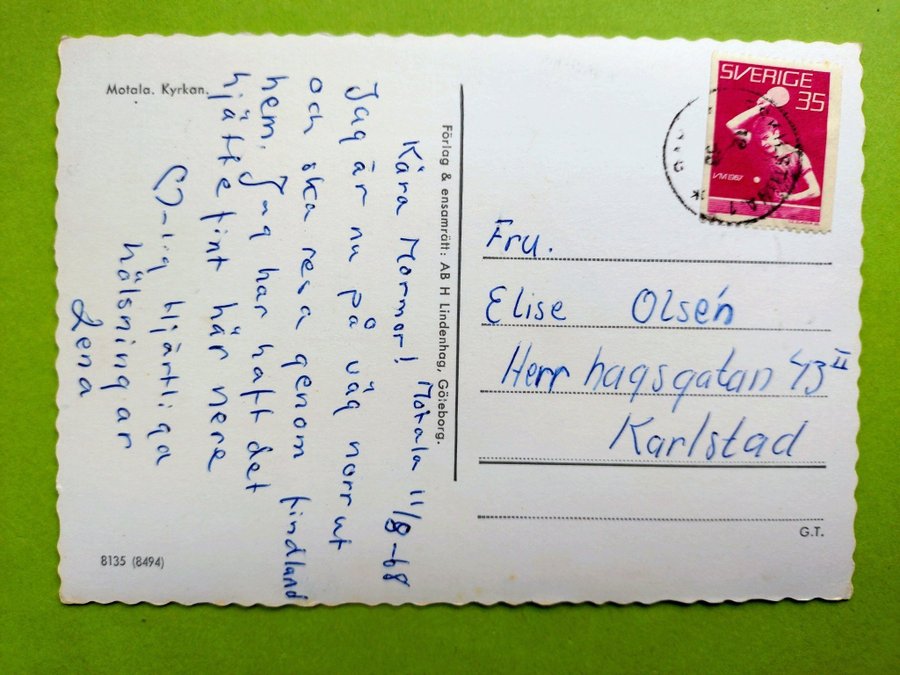 Motala. Kyrkan.
Kära Mormor! Motala 11/8-68
Jag är nu på väg norrut
och ska resa genom Findland
hem. Jag har haft det
hjättefint här nere
hjärtliga
hälsningar
Lena
8135 (8494)
Förlag & ensamrätt: AB H Lindenhag, Göteborg.
SVERIGE
35
VM 1967
Fru.
Elise Olsén
Herrhagsgatan 43 II
Karlstad
G.T.